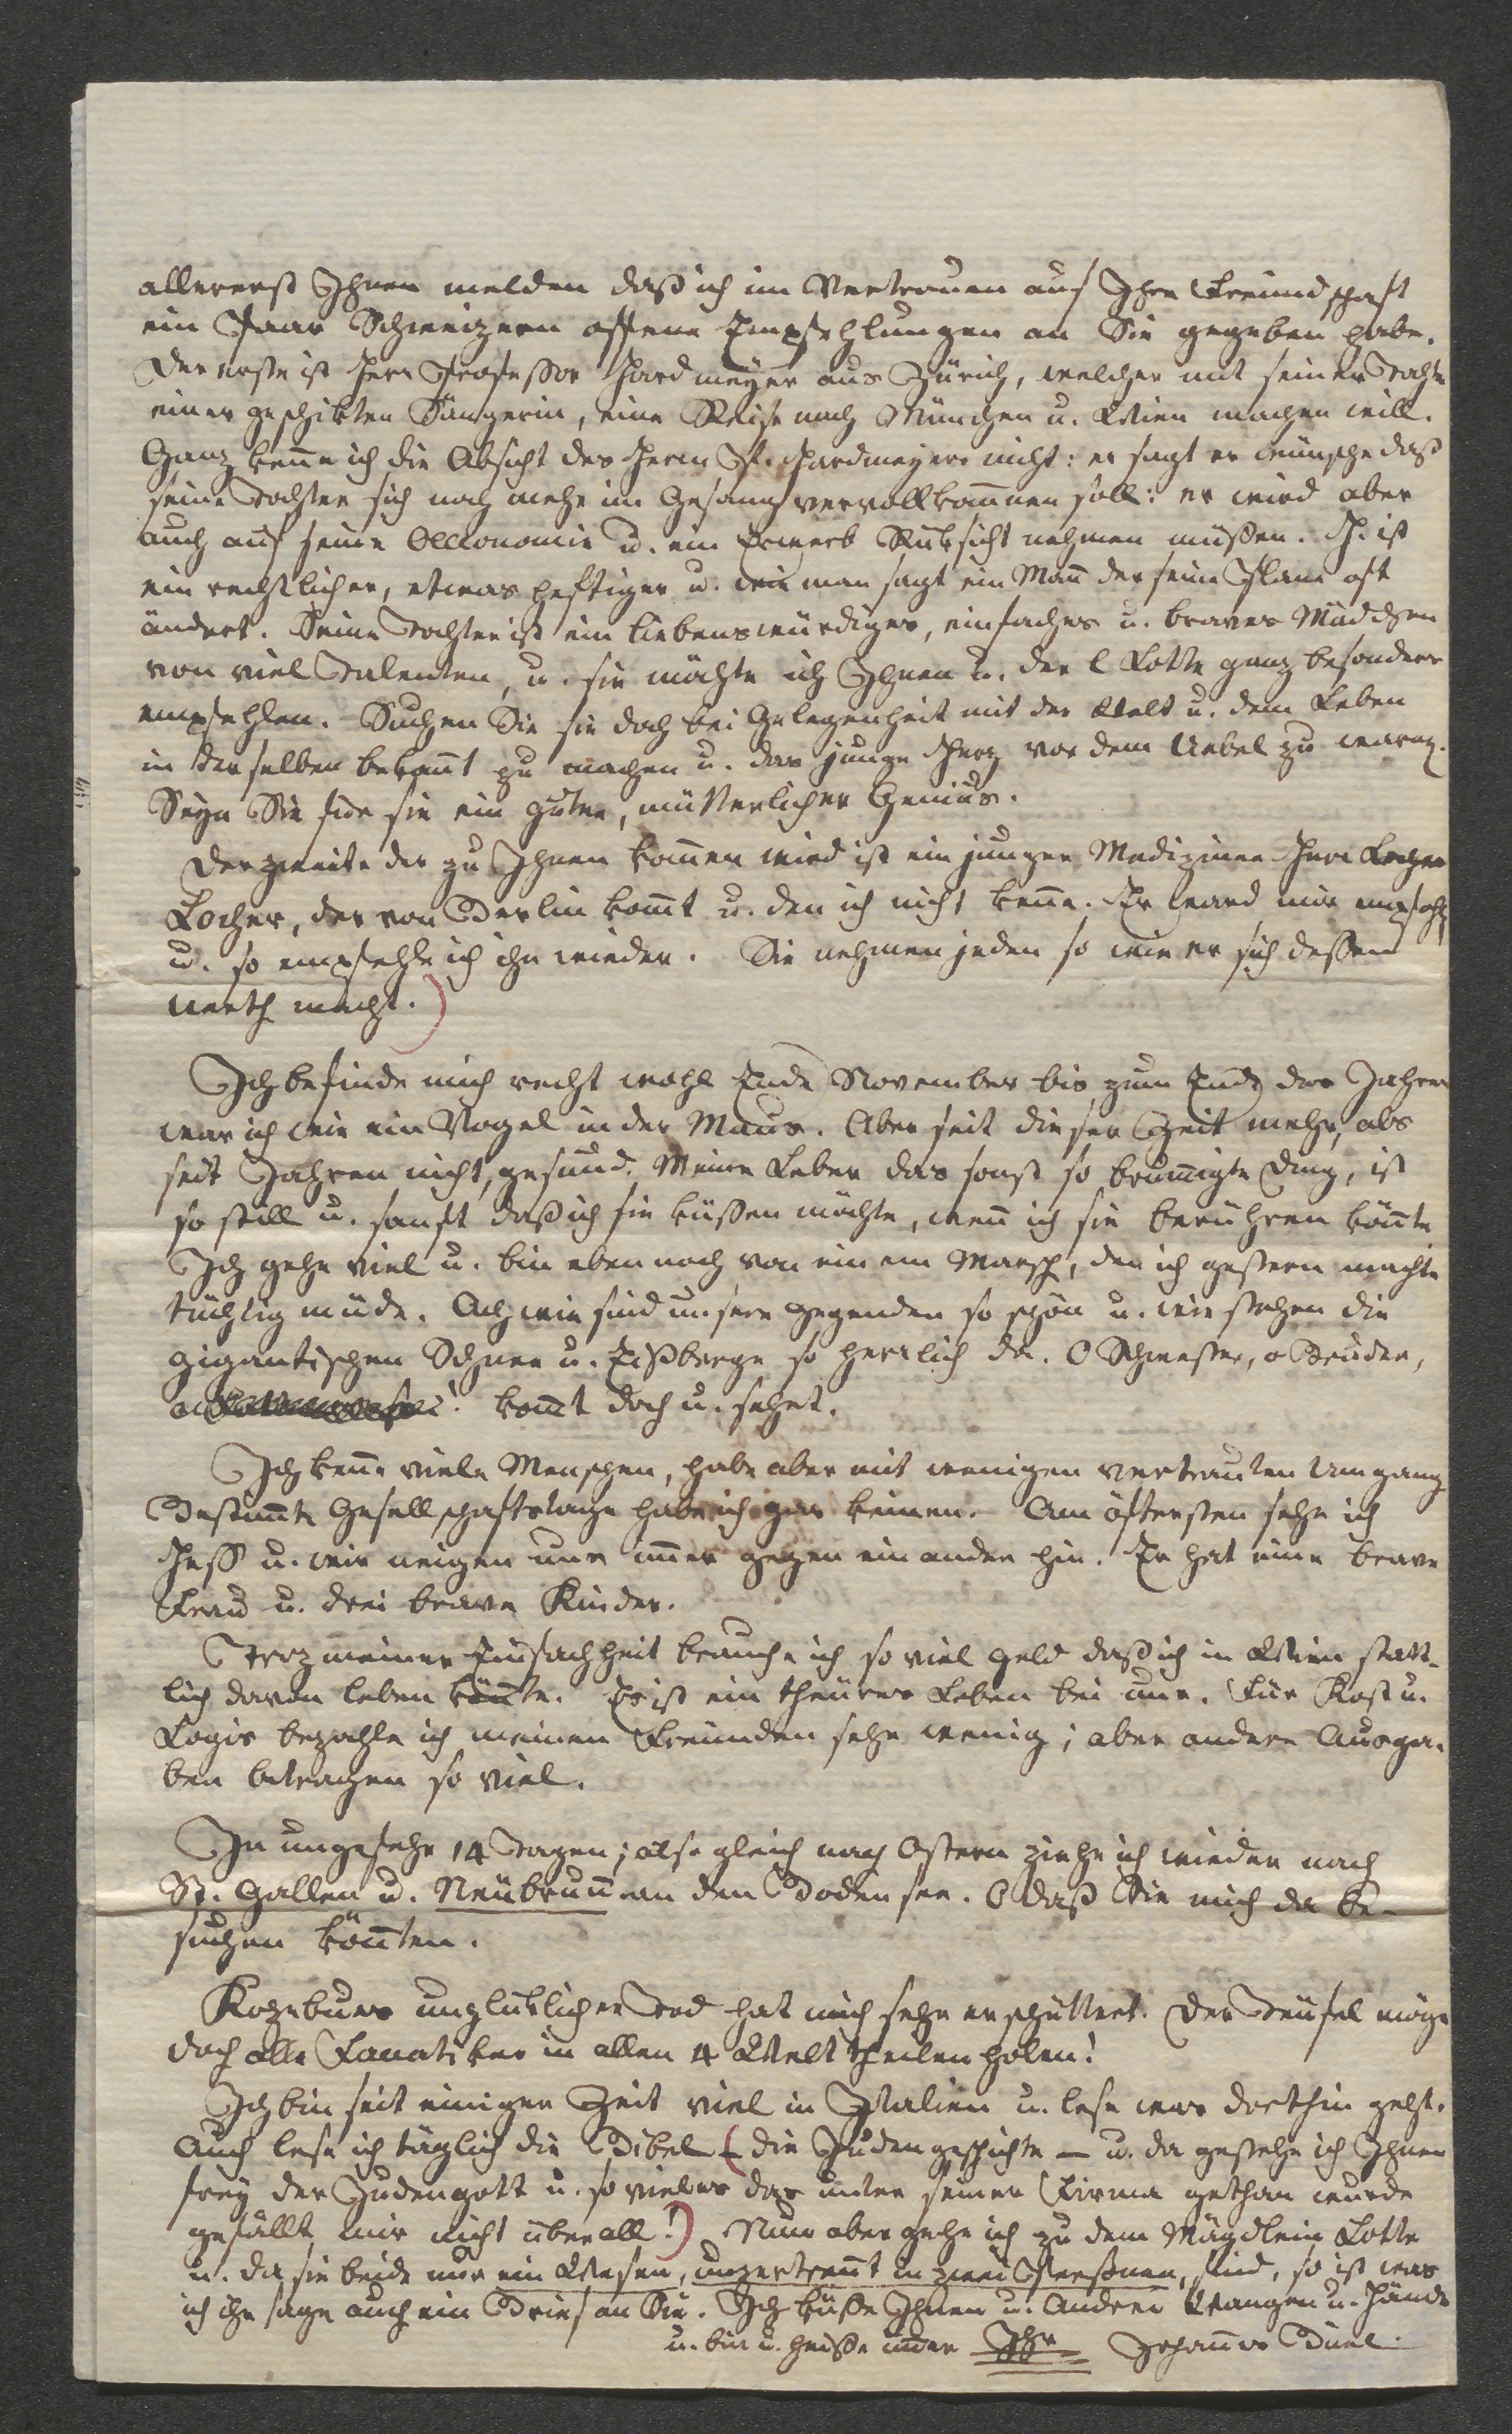 allererst Ihnen melden daß ich im Vertrauen auf Ihre Freundschaft
ein Paar Schweizern offene Empfehlungen an Sie gegeben habe.
Der erste ist Herr Professor Hardmeyer aus Zürich, welcher mit seiner Tochter
einer geschikten Sängerin, eine Reise nach München u. Wien machen will.
Ganz kenne ich die Absicht des Herrn Pr. Hardmeyers nicht: er sagt er wünsche daß
seine Tochter sich noch mehr im Gesang vervollkom̄nen soll: er wird aber
auch auf seine Oeconomie u. ein Erwerb Rüksicht nehmen müßen. H. ist
ein rechtlicher, etwas heftiger u. wie man sagt ein Man̄ der seine Plane oft
ändert. Seine Tochter ist ein liebenswürdiges, einfaches u. braves Mädchen
von viel Talenten, u. sie möchte ich Ihnen u. der l Lotte ganz besonders
empfehlen. Suchen Sie sie doch bei Gelegenheit mit der Welt u. dem Leben
in derselben bekan̄t zu machen u. das junge Herz vor dem Uebel zu warnen.
Seyn Sie für sie ein guter, mütterlicher Genius.
Der zweite der zu Ihnen kom̄en wird ist ein junger Mediziner Herr
Locher, der von Berlin kom̄t u. den ich nicht ken̄e. Er ward mir empfohlen
u. so empfehle ich ihn wieder. Sie nehmen jeden so wie er sich dessen
werth macht.)
Ich befinde mich recht wohl Ende November bis zum Ende des Jahres
war ich wie ein Vogel in der Maus. Aber seit dieser Zeit mehr, als
seit Jahren nicht, gesund. Meine Leber das sonst so Ding, ist
so still u. sanft daß ich sie küßen möchte, wen̄ ich sie berühren kön̄te
Ich gehe viel u. bin eben noch von einem Marsch, den ich gestern machte
tüchtig müde. Ach wie sind unsere Gegenden so schön u. wie stehen die
gigantischen Schnee u. Eißberge so herrlich da. O Schwester, o Bruder,
o kom̄t doch u. sehet.
Ich ken̄e viele Menschen, habe aber mit wenigen vertrauten Umgang
Bestim̄te Gesellschaftstage habe ich gar keinen. Am öftersten sehe ich
Heß u. wir neigen uns im̄er gegen einander hin. Er hat eine brave
Frau u. drei brave Kinder.
Troz meiner Einfachheit brauche ich so viel Geld daß ich in Wien statt-
lich davon leben kön̄te. Es ist ein theures Leben bei uns. Für Kost u.
Logis bezahle ich meinen Freunden sehr wenig; aber andere Ausga-
ben betragen so viel.
In ungefehr 14 Tagen; also gleich nach Ostern ziehe ich wieder nach
St. Gallen u. Neübrun̄ an den Bodensee. O daß Sie mich da be-
suchen kön̄ten.
Kozebues unglüklicher Tod hat mich sehr erschüttert. Der Teufel möge
doch alle Fanatiker in allen 4 Welttheilen holen!
Ich bin seit einiger Zeit viel in Italien u. lese was dorthin geht.
Auch lese ich täglich die Bibel (die Judengeschichte – u. da gestehe ich Ihnen
frey der Judengott u. so vieles das unter seiner Firma gethan wurde
gefällt mir nicht überall!) Nun aber gehe ich zu dem Mägdlein Lotte
u. da sie beide nur ein Wesen, unzertren̄t in zwei Persohnen, sind, so ist was
ich ihr sage auch ein Brief an Sie. Ich küße Ihnen u. Andrei Wangen u. Hände
u. bin u. heiße im̄er Ihr Johan̄es Büel.